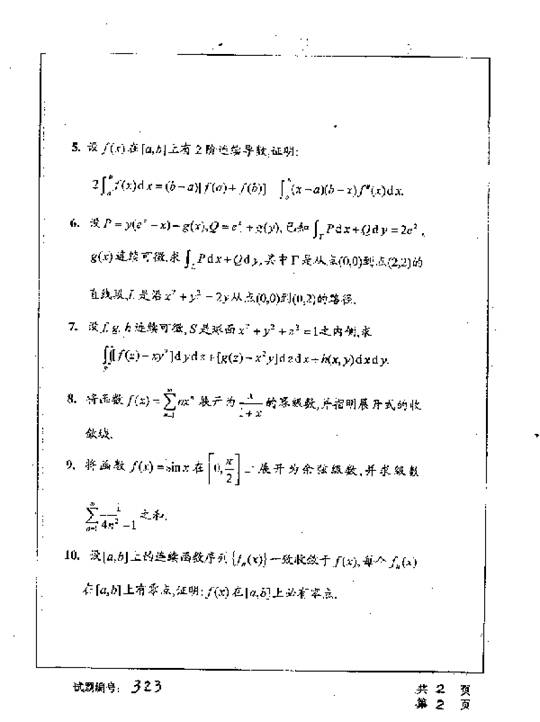 5. 设 f(x) 在 [a,b] 上有 2 阶连续导数,证明:
2∫ₐᵇ f(x)dx = (b−a)[f(a)+f(b)] ∫ₐᵇ (x−a)(b−x)f″(x)dx.
6. 设 P = y(eˣ−x)−g(x), Q = eˣ+g(y), 已知 ∫_Γ Pdx+Qdy = 2e²,
g(x) 连续可微,求 ∫_L Pdx+Qdy, 其中 Γ 是从点(0,0)到点(2,2)的
直线段, L 是沿 x²+y² = 2y 从点(0,0)到(0,2)的路径.
7. 设 f, g, h 连续可微, S 是球面 x²+y²+z² = 1 之内侧, 求
∬[f(z)−xy²]dydz+[g(z)−x²y]dzdx+h(x,y)dxdy.
8. 将函数 f(x) = ∑ nxⁿ 展开为 x/(1+x) 的幂级数,并指明展开式的收
敛域.
9. 将函数 f(x) = sin x 在 [0, π/2] 上展开为余弦级数,并求级数
∑ 1/(4n²−1) 之和.
10. 设 [a,b] 上的连续函数序列 {fₙ(x)} 一致收敛于 f(x), 每个 fₙ(x)
在 [a,b] 上有零点,证明: f(x) 在 [a,b] 上必有零点.
试题编号: 323
共 2 页
第 2 页